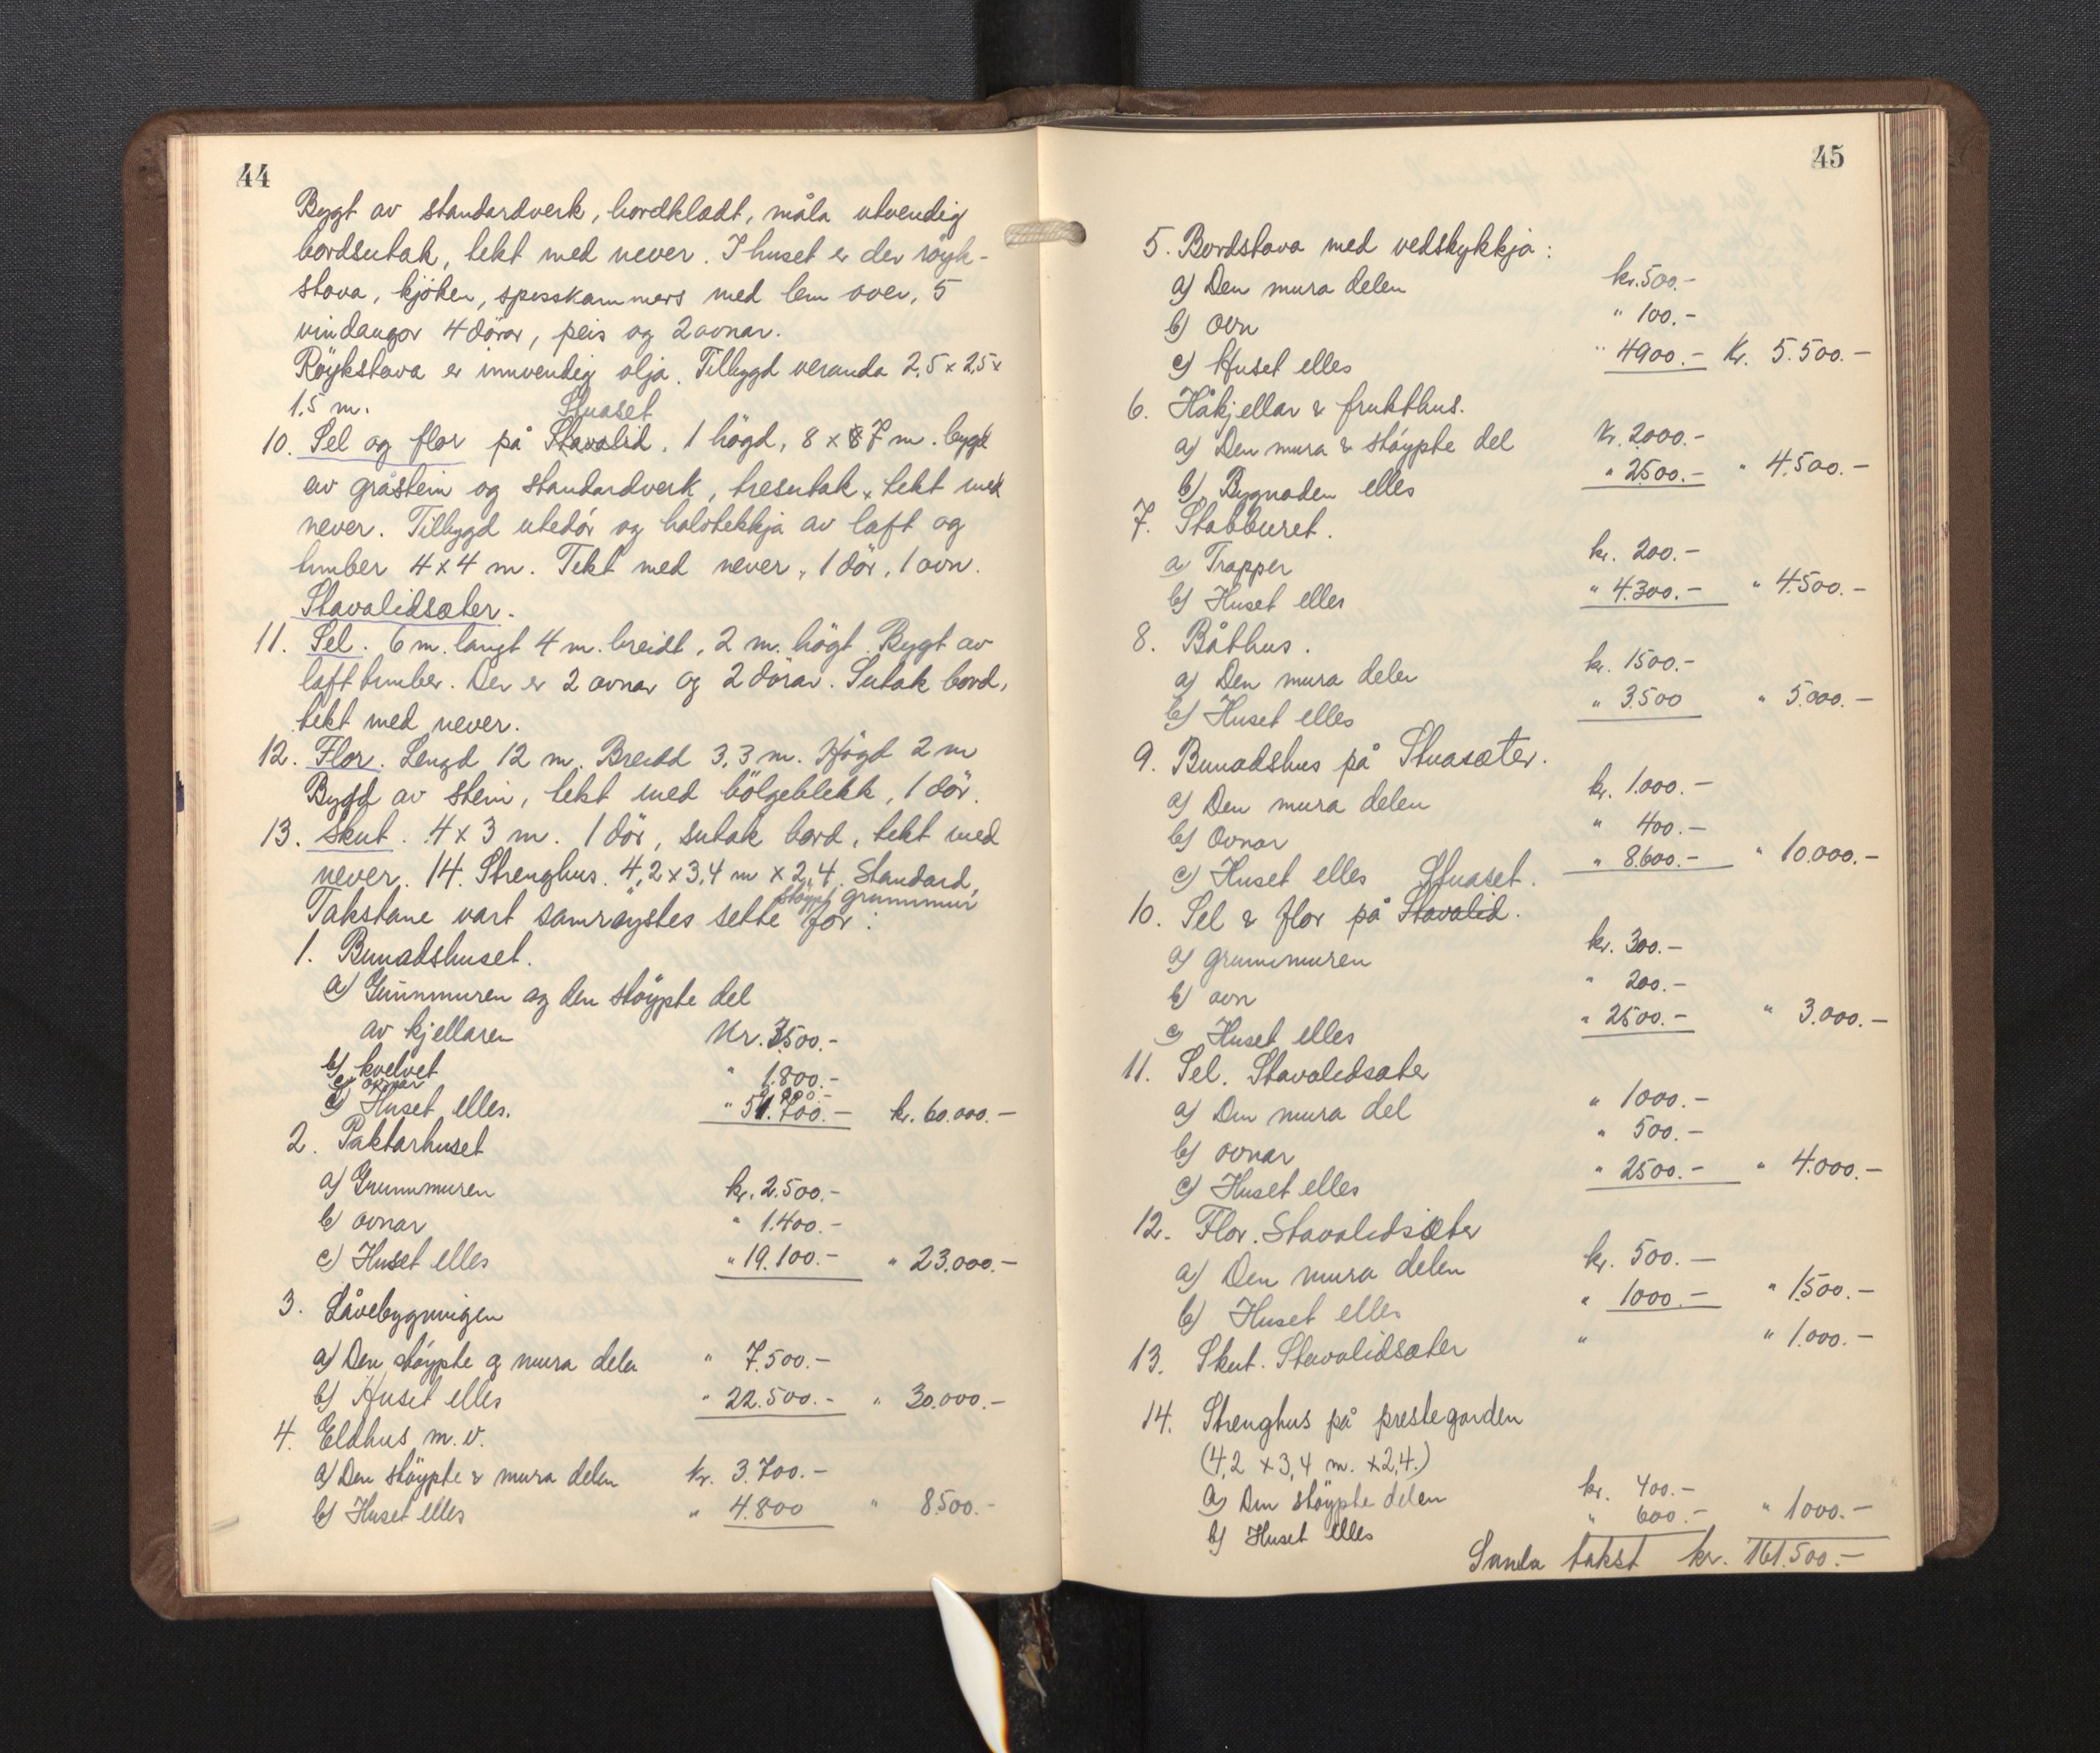 44
Bygt av standardverk, bordklædt, måla utvendig
bordsutak, tekt med never. I huset er der röyk-
stova, kjöken, speskammers med lem over, 5
vindaugor 4 dörar, peis og 2 ovnar.
Röykstova er innvendig olja. Tilbygd veranda 2,5 x 2,5 x
1,5 m.
Stuaset
10. Sel og flor på Stavalid. 1 högd, 8 x 8 7 m. bygt
av gråstein og standardverk, tresutak, tekt med
never. Tilbygd utedör og halvtekkja av laft og
timber 4 x 4 m. Tekt med never, 1 dör, 1 ovn.
Stavalidsæter.
11. Sel. 6 m. langt 4 m. breidt, 2 m. högt. Bygt av
laft timber. Der er 2 ovnar og 2 dörar. Sutak bord,
tekt med never.
12. Flor. Lengd 12 m. Breidd 3,3 m. Högd 2 m
Bygd av stein, tekt med bölgeblekk, 1 dör.
13. Skut. 4 x 3 m. 1 dör, sutak bord, tekt med
never. 14. Strenghus. 4,2 x 3,4 m x 2,4. Standard,
støypt grunnmur
Takstane vart samröystes sette for:
1. Bunadshuset.
a) Grunnmuren og den støypte del
av kjellaren Kr. 3500.-
b) kvelvet " 1.800.-
c) ovnar 3.000.-
d) Huset elles. " 51.700.- kr. 60.000.-
2. Paktarhuset
a) Grunnmuren kr. 2.500.-
b) ovnar " 1.400.-
c) Huset elles " 19.100.- " 23.000.-
3. Låvebygningen
a) Den støypte og mura delen " 7.500.-
b) Huset elles " 22.500.- " 30.000.-
4. Eldhus m.v.
a) Den støypte & mura delen kr. 3.700.-
b) Huset elles " 4.800 " 8500.-
45
5. Bordstova med vedskykkja:
a) Den mura delen kr. 500.-
b) Ovn " 100.-
c) Huset elles " 4900.- Kr. 5.500.-
6. Håkjellar & frukthus.
a) Den mura & støypte del Kr. 2000.-
b) Bygnaden elles " 2500.- " 4.500.-
7. Stabburet.
a Trapper kr. 200.-
b) Huset elles " 4.300.- " 4.500.-
8. Båthus.
a) Den mura delen kr. 1500.-
b) Huset elles " 3.500 " 5.000.-
9. Bunadshus på Stuasæter.
a) Den mura delen kr. 1.000.-
b) Ovnar " 400.-
c) Huset elles " 8.600.- " 10.000.-
Stuaset.
10. Sel & flor på Stavalid.
a) grunnmuren kr. 300.-
b) ovn " 200.-
c) Huset elles " 2500.- " 3.000.-
11. Sel. Stavalidsæter
a) Den mura del " 1000.-
b) ovnar " 500.-
c) Huset elles " 2500.- " 4.000.-
12. Flor. Stavalidsæter
a) Den mura delen kr. 500.-
b) Huset elles " 1000.- " 1500.-
13. Skut. Stavalidsæter " " 1.000.-
14. Strenghus på prestegarden
(4,2 x 3,4 m. x 2,4.)
a) Den støypte delen kr. 400.-
b) Huset elles " 600.- " 1000.-
Sunda takst kr. 161.500.-